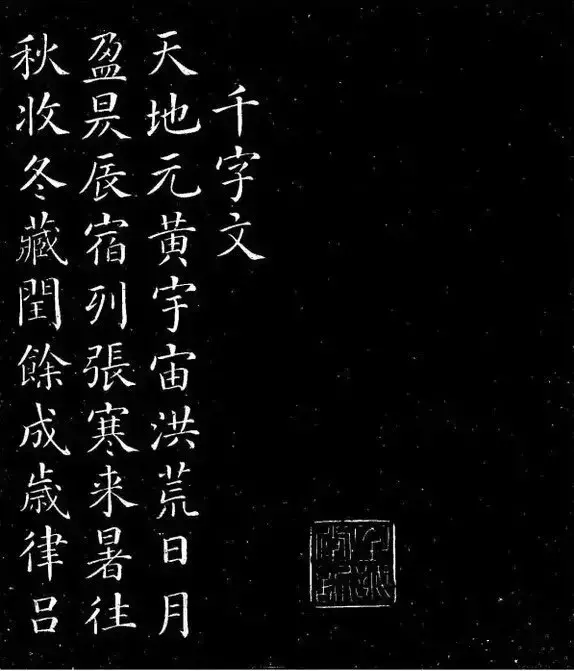 千字文
天地元黄宇宙洪荒日月
盈昃辰宿列張寒来暑往
秋收冬藏閏餘成歳律吕